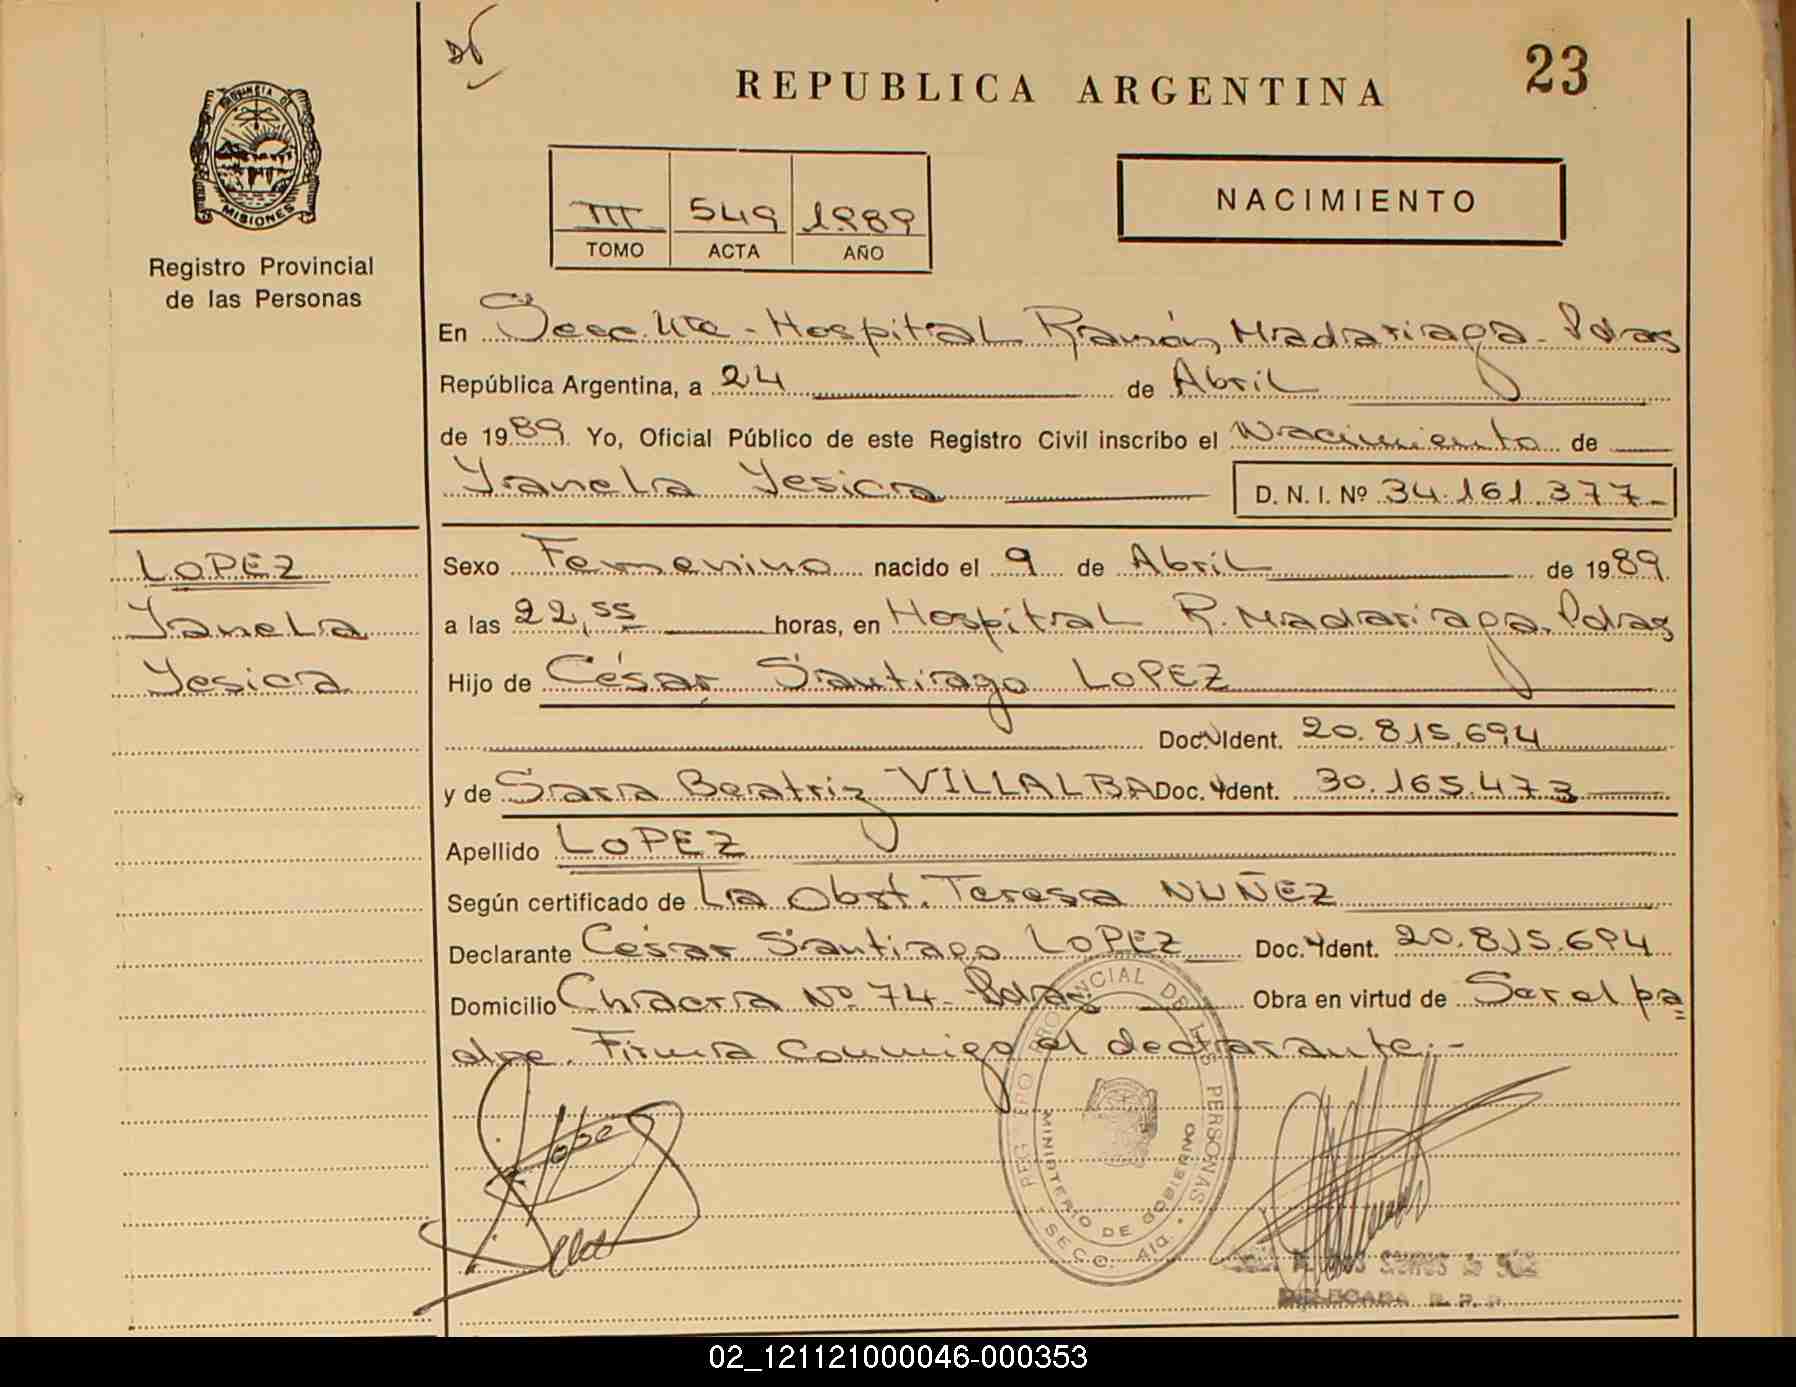 23
REPUBLICA ARGENTINA
PROVINCIA DE
MISIONES
Registro Provincial
de las Personas
III 549 1989
TOMO ACTA AÑO
NACIMIENTO
En Secc. 4ta - Hospital Ramón Madariaga - Pdas
República Argentina, a 24 de Abril
de 1989 Yo, Oficial Público de este Registro Civil inscribo el Nacimiento de
Yanela Yesica D. N. I. Nº 34.161.377-
LOPEZ
Yanela
Yesica
Sexo Femenino nacido el 9 de Abril de 1989
a las 22,55 horas, en Hospital R. Madariaga. Pdas
Hijo de César Santiago LOPEZ
Doc. Ident. 20.815.694
y de Sara Beatriz VILLALBA Doc. Ident. 30.165.473
Apellido LOPEZ
Según certificado de La Obst. Teresa NUÑEZ
Declarante César Santiago LOPEZ Doc. Ident. 20.815.694
Domicilio Chacra Nº 74 - Pdas Obra en virtud de Ser el pa
dre. Firma conmigo el declarante.-
REGISTRO PROVINCIAL DE LAS PERSONAS
MINISTERIO DE GOBIERNO
SECC. 4ta.
Lopez
DELEGADA R. P. P.
02_121121000046-000353